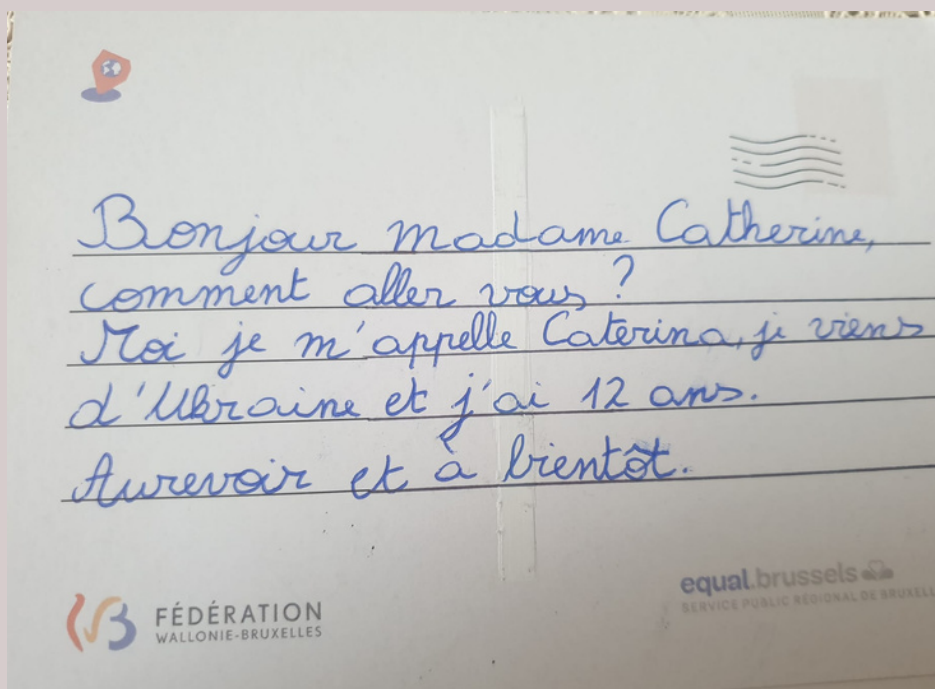 Bonjour madame Catherine,
comment aller vous ?
Moi je m'appelle Caterina, je viens
d'Ukraine et j'ai 12 ans.
Aurevoir et à bientôt.
FÉDÉRATION
WALLONIE-BRUXELLES
equal.brussels
SERVICE PUBLIC RÉGIONAL DE BRUXELL